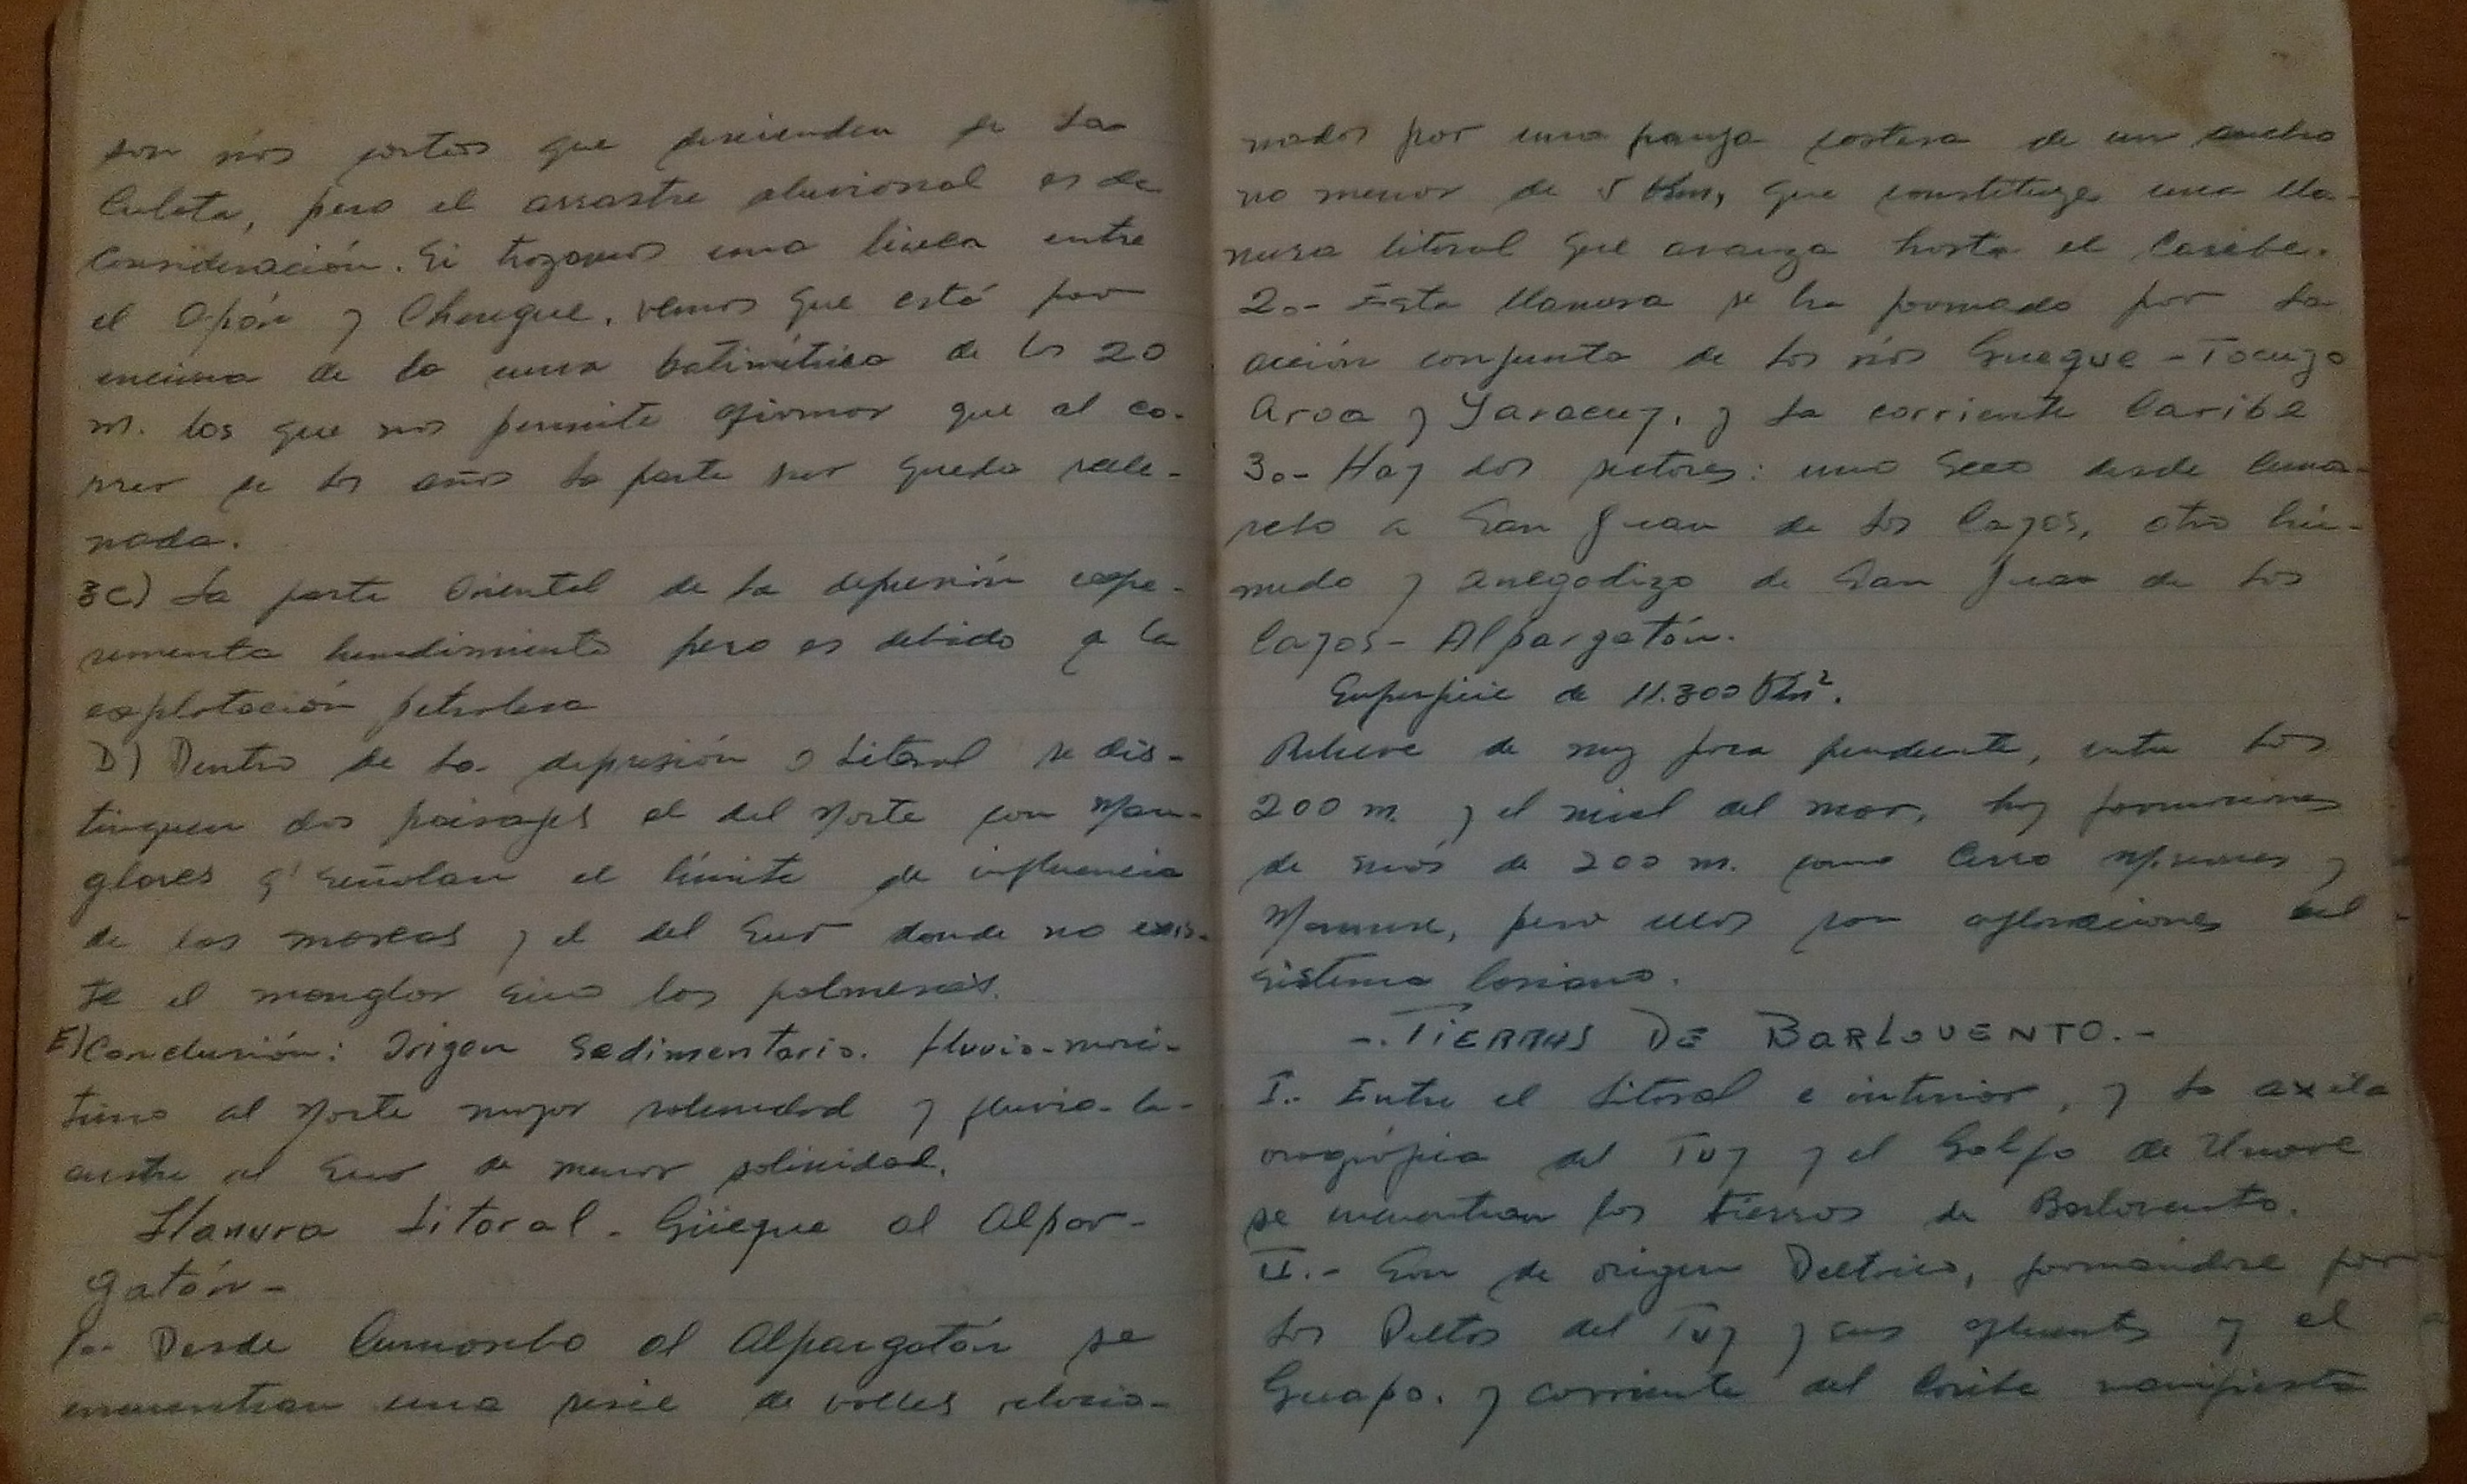 son ríos cortos que descienden de La
Culata, pero el arrastre aluvional es de
Consideración. Si trazamos una línea entre
el Apón y Chougue, vemos que está por
encima de la batimétrica de los 20
m. los que nos permite afirmar que al co-
rrer de los años la parte sur queda relle-
nada.
C) La parte Oriental de la depresión expe-
rementa hundimiento pero es debido a la
explotación petrolera
D) Dentro de la depresión o Litoral se dis-
tinguen dos paisajes el del Norte con Man-
glares q' señalan el límite de influencia
de las mareas y el del Sur donde no exis-
te el manglar sino las palmeras.
E) Conclusión: Origen Sedimentario. fluvio-marí-
timo al Norte mayor salinidad y fluvio-la-
custre al Sur de menor salinidad.
Llanura Litoral - Güeque al Alpar-
gatón -
1o- Desde Cumarebo al Alpargatón se
encuentran una serie de valles relacio-
nados por una franja costera de un ancho
no menor de 5 Km, que constituye una lla-
nura litoral que avanza hasta el Caribe.
2o- Esta llanura se ha formado por la
acción conjunta de los ríos Gueque - Tocuyo
Aroa y Yaracuy, y la corriente Caribe
3o- Hay dos sectores: uno Seco desde Cuma-
rebo a San Juan de los Cayos, otro hú-
medo y anegadizo de San Juan de los
Cayos - Alpargatón.
Superficie de 11.300 Km².
Relieve de muy poca pendiente, entre los
200 m. y el nivel del mar, hay formaciones
de más de 200 m. como Cerro Misiones y
Manaure, pero ellos son afloraciones del
sistema Coriano.
-. TIERRAS DE BARLOVENTO. -
I.- Entre el Litoral e interior, y la axila
orográfica del Tuy y el Golfo de Unare
se encuentran las tierras de Barlovento.
II.- Son de origen Deltaico, formándose por
los Deltas del Tuy y sus afluentes y el
Guapo. y corriente del Caribe manifiesta